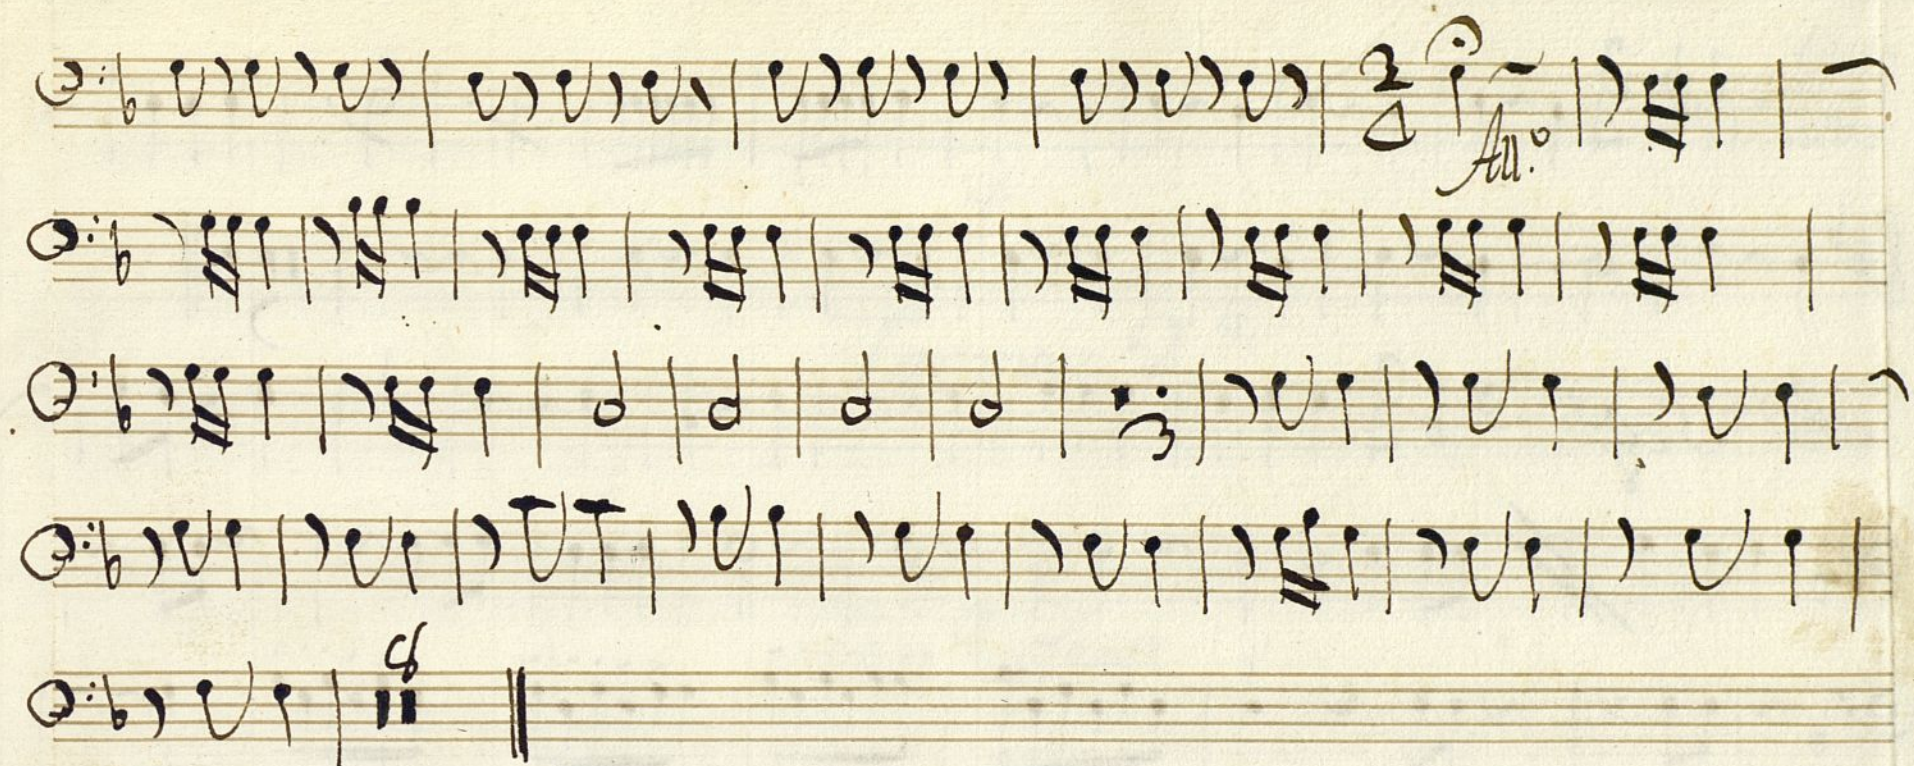 2
4
All.º
3
8